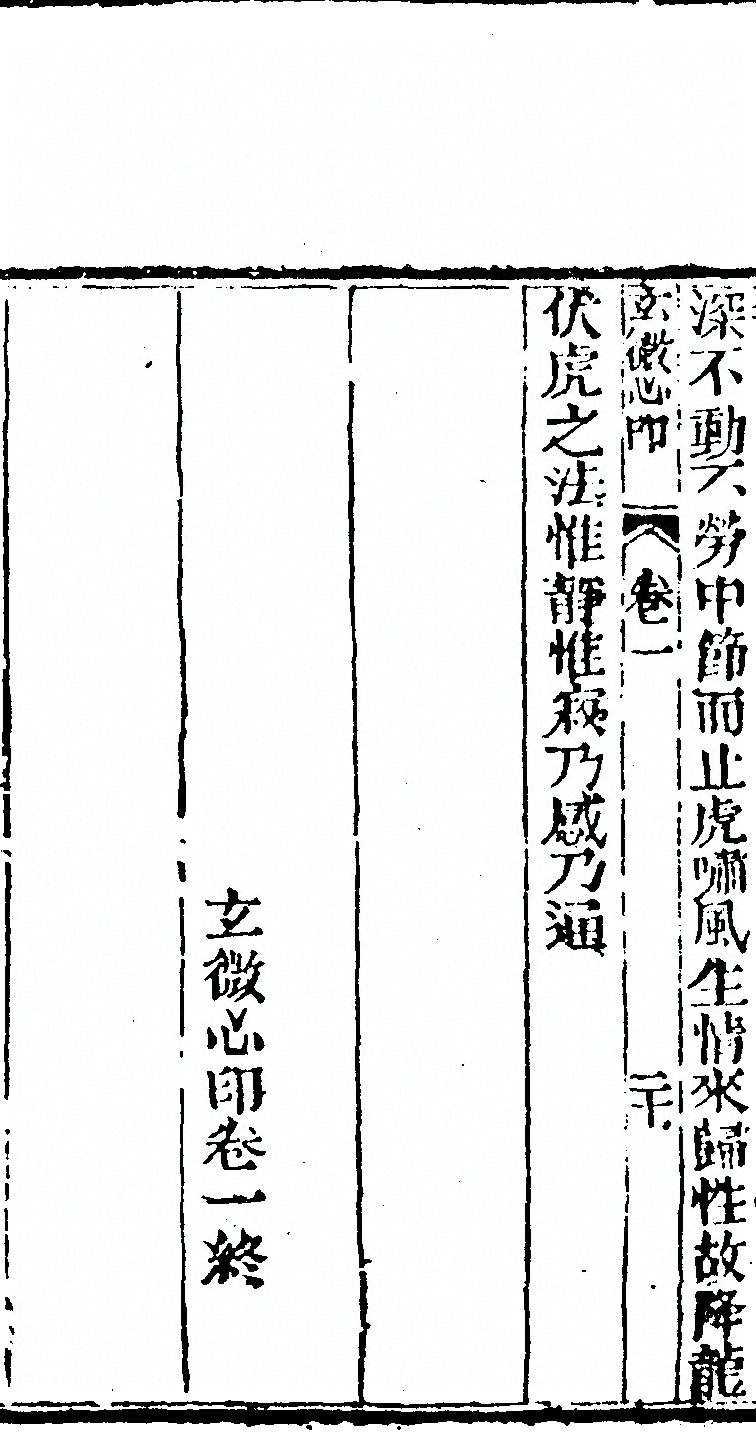 深不動不勞中節而止虎嘯風生情來歸性故降龍
玄微心印 卷一 二十
伏虎之法惟靜惟寂乃感乃通
玄微心印卷一終